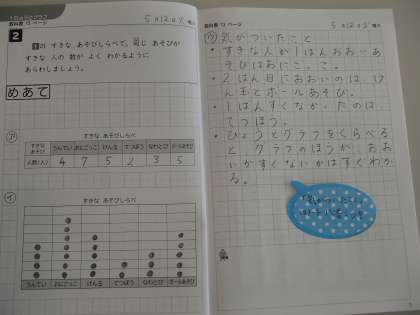 教科書 12 ページ
5月12日
2
1の すきな あそびしらべで、同じ あそびが
すきな 人の 数が よく わかるように
あらわしましょう。
めあて
㋐
すきな あそびしらべ
すきな あそび うんてい おにごっこ けん玉 てつぼう なわとび ボールあそび
人数(人) 4 7 5 2 3 5
㋑
すきな あそびしらべ
うんてい おにごっこ けん玉 てつぼう なわとび ボールあそび
教科書 12 ページ
5月12日
㋒気がついたこと
・すきな人が1ばんおおいあ
そびはおにごっこ。
・2ばん目におおいのは、け
ん玉とボールあそび。
・1ばんすくなかったのは、
てつぼう。
・ひょうとグラフをくらべる
と、グラフのほうが、おお
いかすくないかはすぐわか
る。